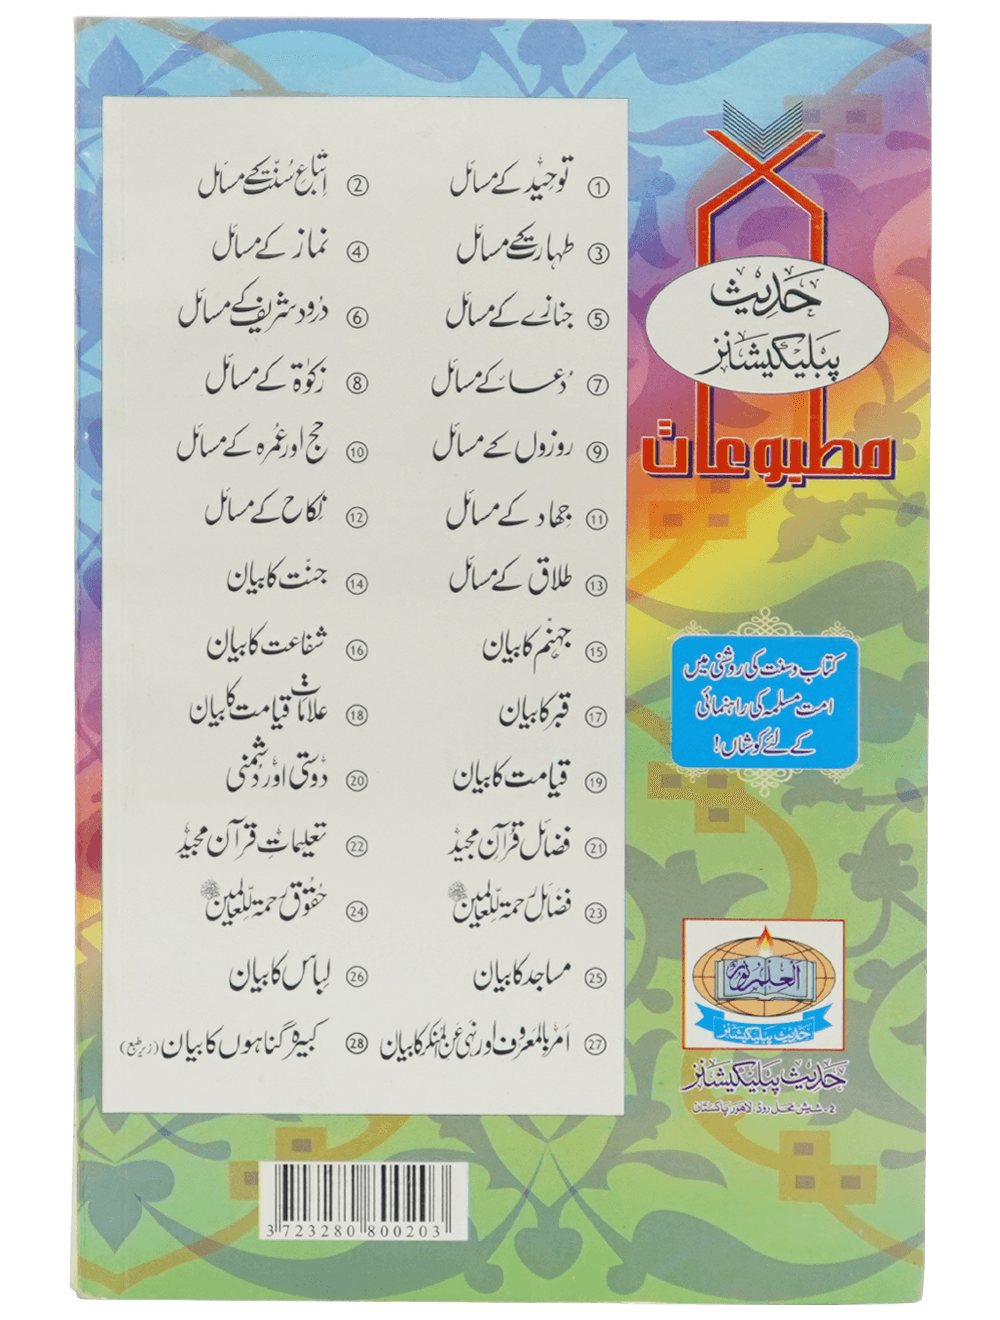 حدیث
پبلیکیشنز
مطبوعات
① توحید کے مسائل
② اتباعِ سُنّت کے مسائل
③ طہارت کے مسائل
④ نماز کے مسائل
⑤ جنازے کے مسائل
⑥ درود شریف کے مسائل
⑦ دُعا کے مسائل
⑧ زکوٰۃ کے مسائل
⑨ روزوں کے مسائل
⑩ حج اور عمُرہ کے مسائل
⑪ جہاد کے مسائل
⑫ نکاح کے مسائل
⑬ طلاق کے مسائل
⑭ جنت کا بیان
⑮ جہنّم کا بیان
⑯ شفاعت کا بیان
⑰ قبر کا بیان
⑱ علاماتِ قیامت کا بیان
⑲ قیامت کا بیان
⑳ دوستی اور دُشمنی
㉑ فضائل قرُآن مجید
㉒ تعلیماتِ قرآن مجید
㉓ فضائل رحمۃ للعالمین ﷺ
㉔ حقُوق رحمۃ للعالمین ﷺ
㉕ مساجد کا بیان
㉖ لباس کا بیان
㉗ امر بالمعروف اور نہی عن المنکر کا بیان
㉘ کبیرہ گناہوں کا بیان (زیر طبع)
کتاب و سنت کی روشنی میں
امت مسلمہ کی راہنمائی
کے لئے کوشاں!
العلم نور
حدیث پبلیکیشنز
حدیث پبلیکیشنز
2- شیش محل روڈ، لاهور پاکستان
3 723280 800203